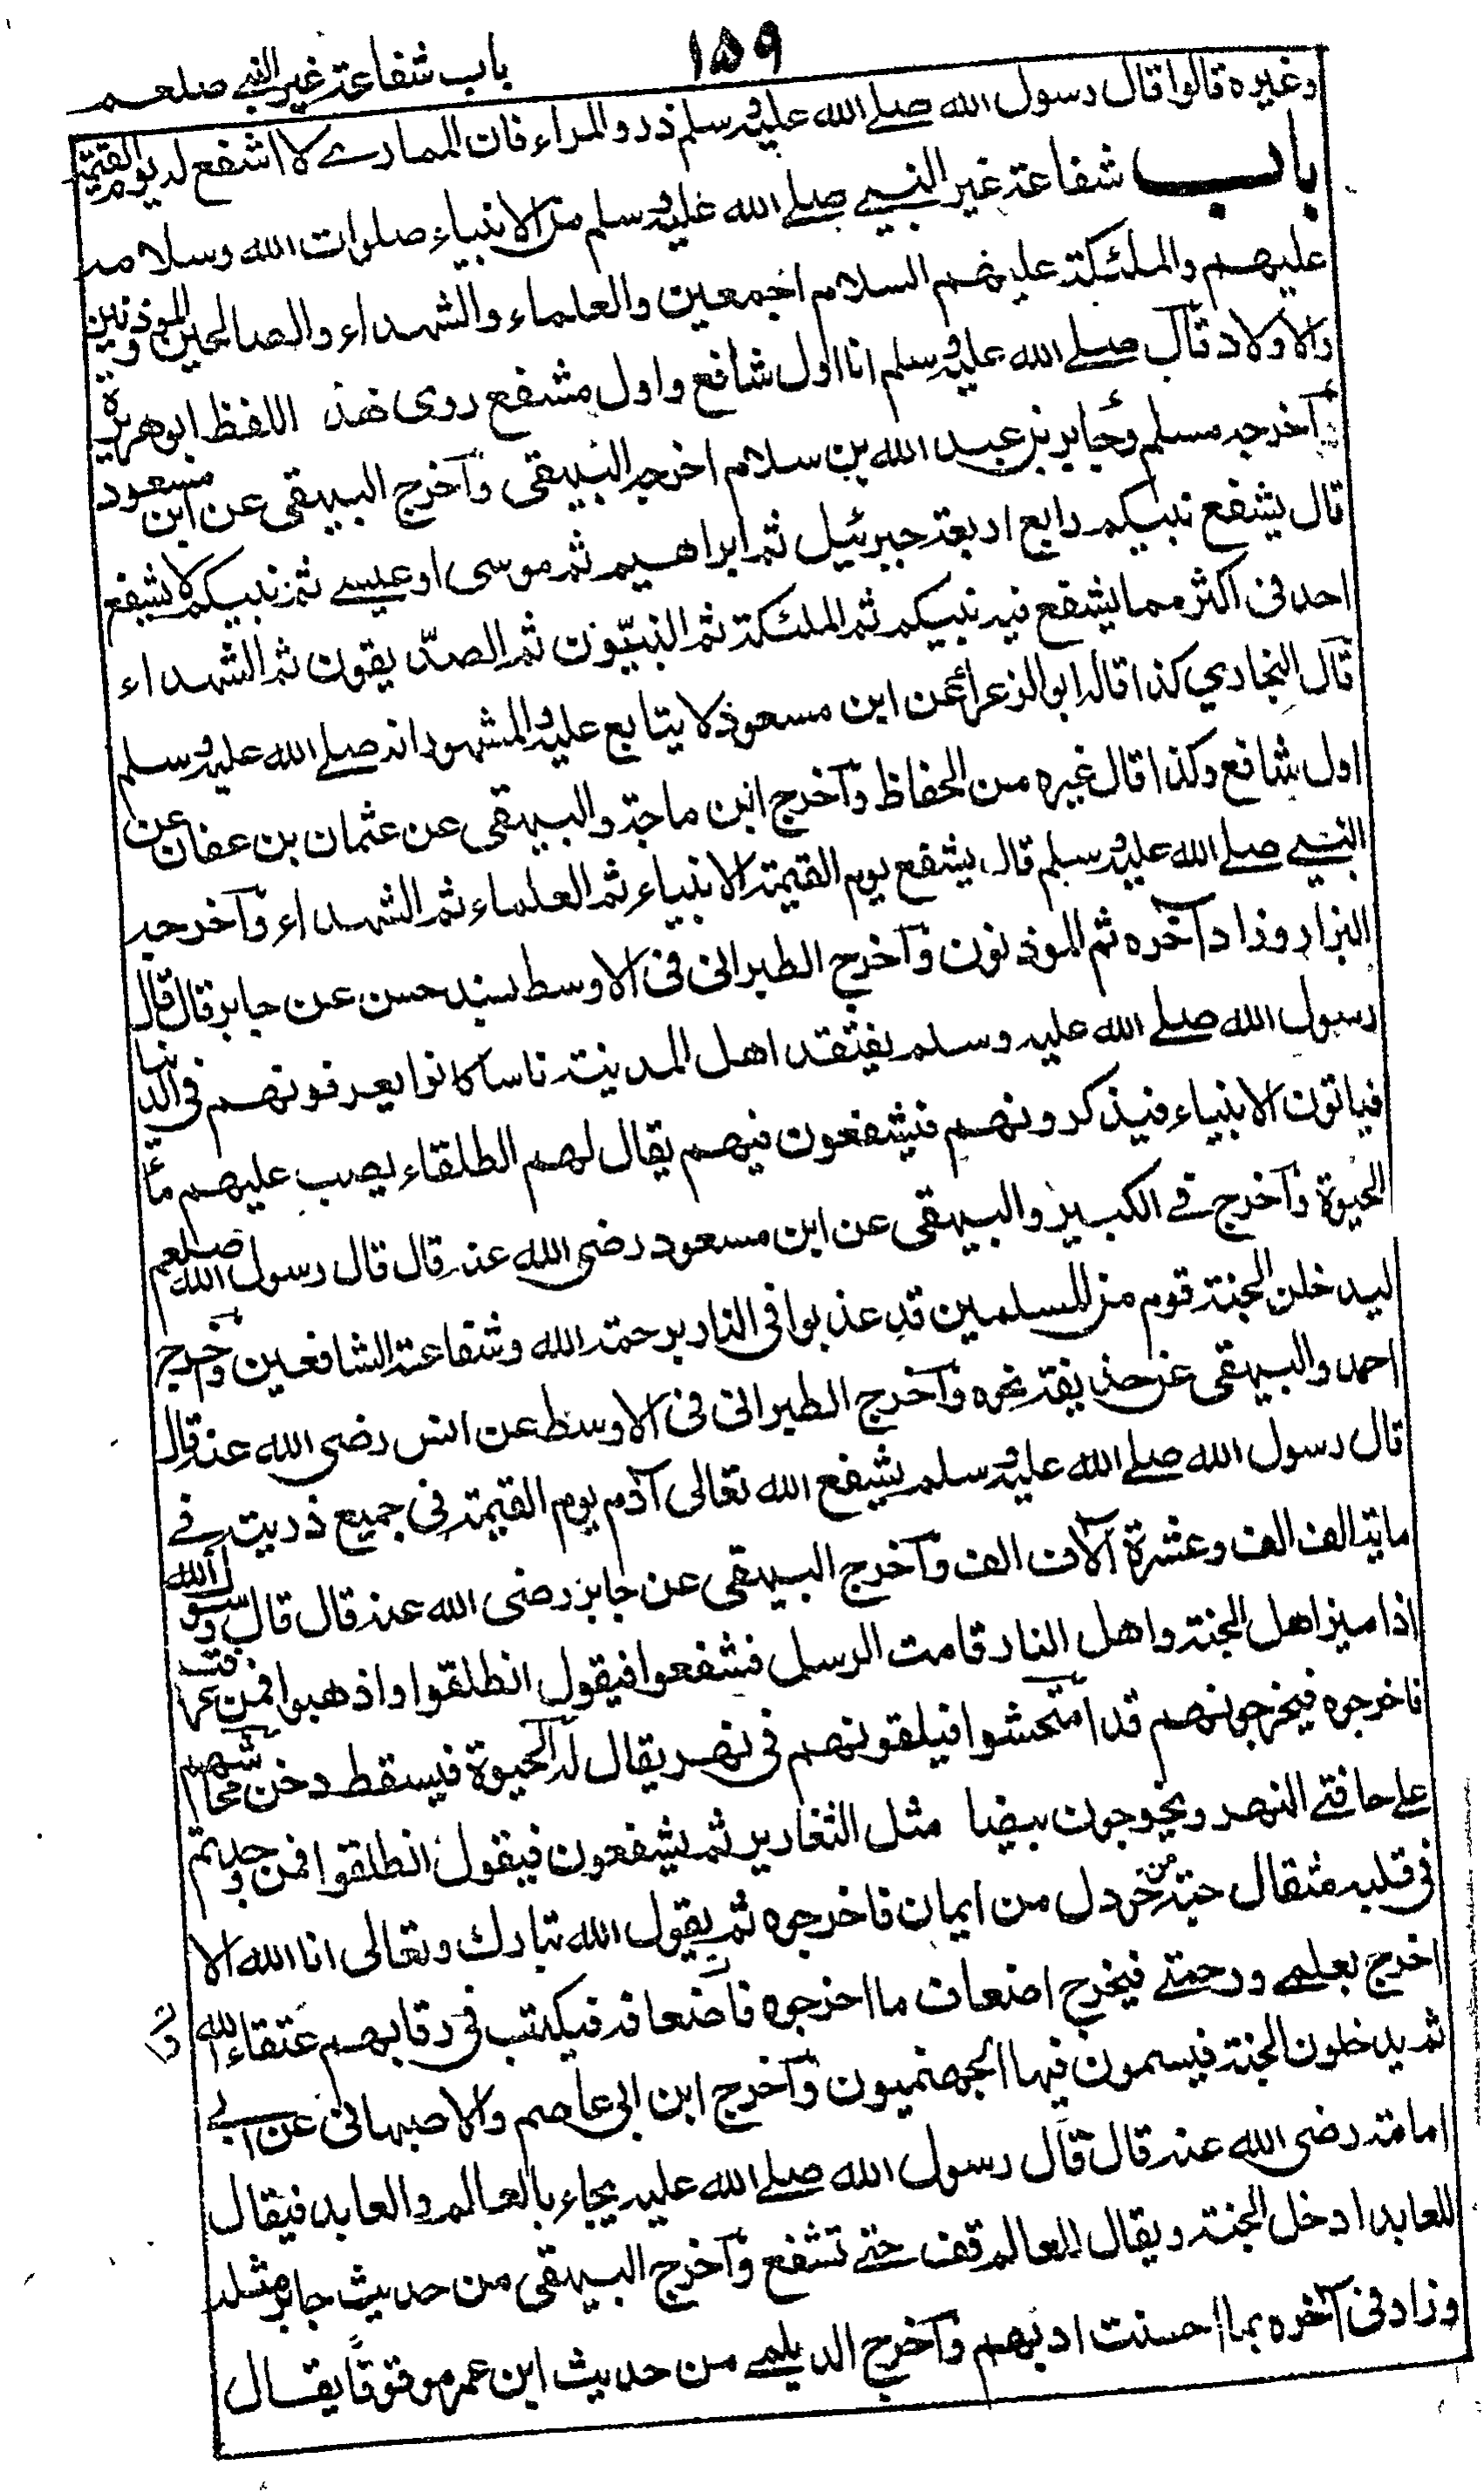 ١٥٩
باب شفاعة غير النبي صلعم
وغيره قالوا قال رسول الله صلے الله عليه وسلم ذروالمراء فان الممارے لا اشفع له يوم القيمة
باب شفاعة غير النبي صلے الله عليه وسلم من الانبياء صلوات الله وسلامه
عليهم والملئكة عليهم السلام اجمعين والعلماء والشهداء والصالحين والموذنين
والاولاد قال صلے الله عليه وسلم انا اول شافع واول مشفع روى هذ اللفظ ابوهريرة
اخرجه مسلم وجابر بن عبد الله بن سلام اخرجه البيهقى وآخرج البيهقى عن ابن مسعود
قال يشفع نبيكم رابع اربعة جبرئيل ثم ابراهيم ثم موسى او عيسے ثم نبيكم لا يشفع
احد فى اكثر مما يشفع فيه نبيكم ثم الملئكة ثم النبيّون ثم الصدّيقون ثم الشهداء
قال البخاري كذا قاله ابو الزعراء عن ابن مسعود لا يتابع عليه والمشهور انه صلے الله عليه وسلم
اول شافع وكذا قال غيره من الحفاظ وآخرج ابن ماجة والبيهقى عن عثمان بن عفان عن
النبي صلے الله عليه وسلم قال يشفع يوم القيمة الانبياء ثم العلماء ثم الشهداء وآخرجه
البزار وزاد آخره ثم الموذنون وآخرج الطبرانى فى الاوسط بسند حسن عن جابر قال قال
رسول الله صلے الله عليه وسلم يفتقد اهل المدينة ناسا كانوا يعرفونهم فى الدنيا
فياتون الانبياء فيذكرونهم فيشفعون فيهم يقال لهم الطلقاء يصب عليهم ماء
الحيوة وآخرج فے الكبير والبيهقى عن ابن مسعود رضى الله عنه قال قال رسول الله صلعم
ليدخلن الجنة قوم من المسلمين قد عذبوا فى النار برحمة الله وشفاعة الشافعين وآخرج
احمد والبيهقى عن حذيفة نحوه وآخرج الطبرانى فى الاوسط عن انس رضى الله عنه قال
قال رسول الله صلے الله عليه وسلم يشفع الله تعالى آدم يوم القيمة فى جميع ذريته فے
ماية الف الف وعشرة آلاف الف وآخرج البيهقى عن جابر رضى الله عنه قال قال رسول الله
اذا ميز اهل الجنة واهل النار قامت الرسل فشفعوا فيقول انطلقوا واذهبوا فمن عرفتم
فاخرجوه فيخرجونهم قد امتحشوا فيلقونهم فى نهر يقال له الحيوة فيسقط دخن محاشهم
علے حافتے النهر ويخرجون بيضا مثل الثغارير ثم يشفعون فيقول انطلقوا فمن وجدتم
فى قلبه مثقال حبة من خردل من ايمان فاخرجوه ثم يقول الله تبارك وتعالى انا الله الا
اخرج بعلمے ورحمتے فيخرج اضعاف ما اخرجوه واضعافه فيكتب فى رقابهم عتقاء الله
ثم يدخلون الجنة فيسمون فيها الجهنميون وآخرج ابن ابى عاصم والاصبهانى عن ابے
امامة رضى الله عنه قال قال رسول الله صلے الله عليه يجاء بالعالم والعابد فيقال
للعابد ادخل الجنة ويقال للعالم قف حتے تشفع وآخرج البيهقى من حديث جابر مثله
وزاد فى آخره بما احسنت ادبهم وآخرج الديلمے من حديث ابن عمر موقوفًا يقال